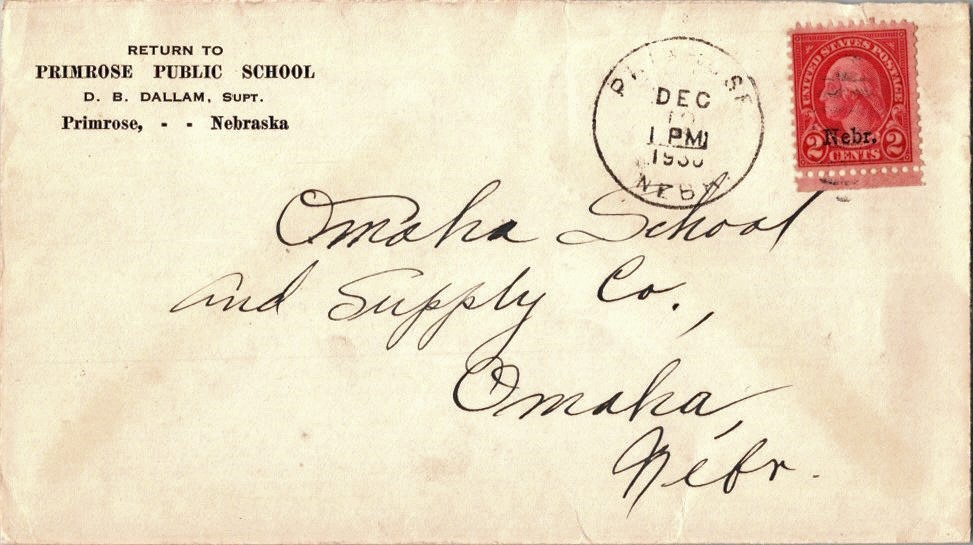 RETURN TO
PRIMROSE PUBLIC SCHOOL
D. B. DALLAM, SUPT.
Primrose, - - Nebraska
PRIMROSE
DEC
1 PM
NEBR.
UNITED STATES POSTAGE
Nebr.
2 CENTS 2
Omaha School
and Supply Co.,
Omaha,
Nebr.